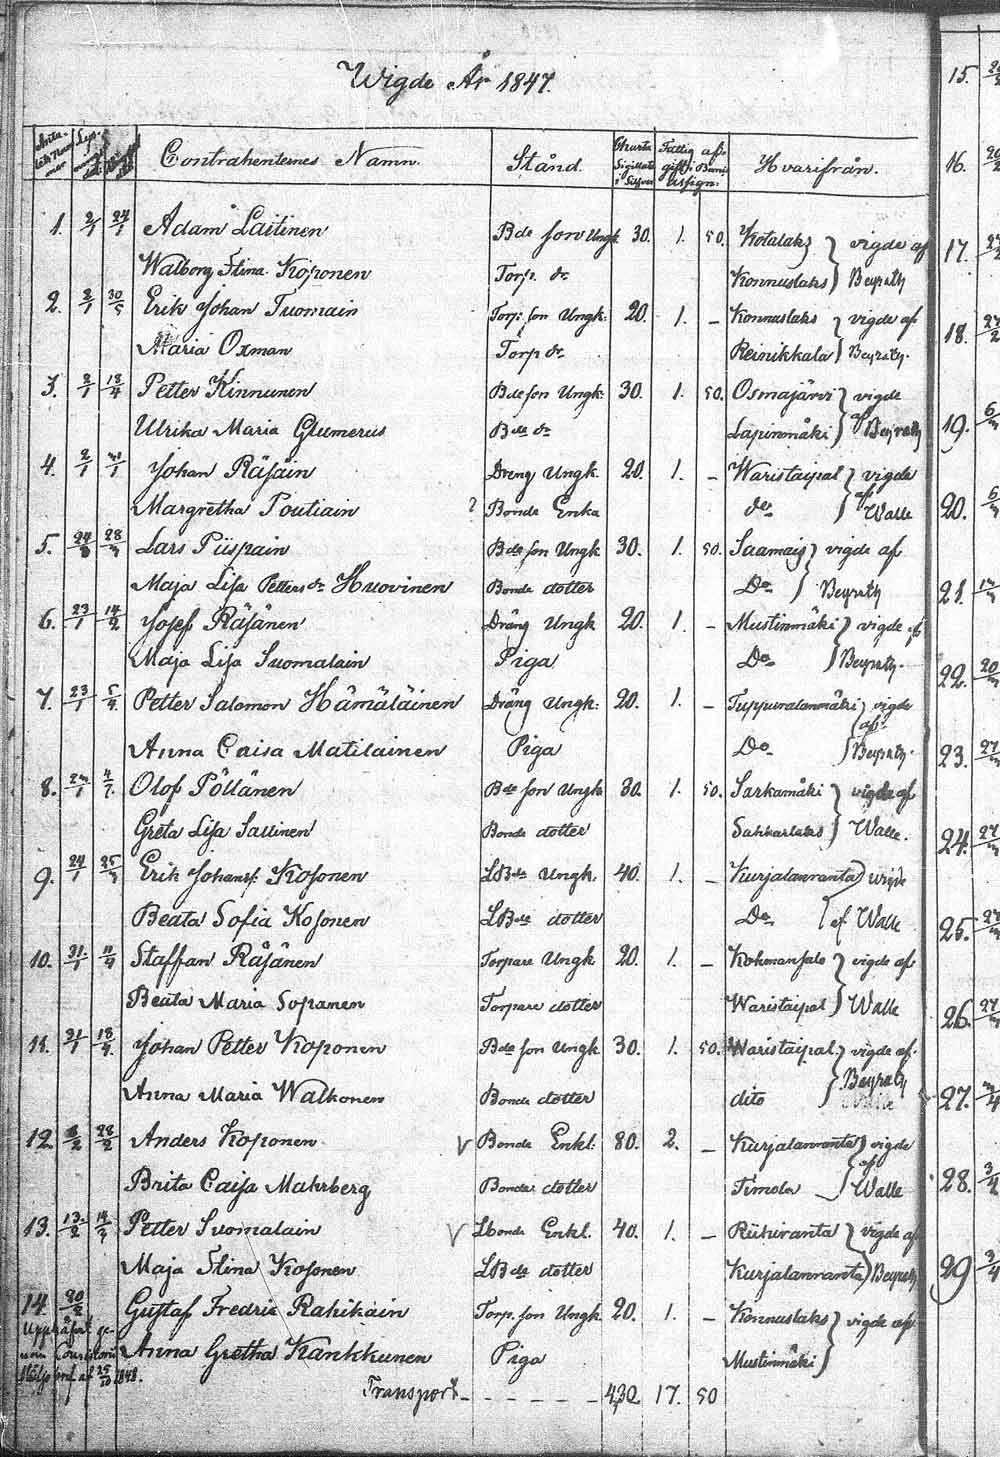 Wigde År 1847.
Contrahenternes Namn. Stånd. Charta Sigillata Fattig afgift Hvarifrån.
1. 2/1 24/1 Adam Laitinen Bde son Ungk 30. 1. 50. Kotalaks vigde af
Walborg Stina Koponen Torp. dr Konnuslaks Beyrath
2. 2/1 30/5 Erik Johan Tuomain Torp. son Ungk: 20. 1. – Konnuslaks vigde af
Maria Oxman Torp dr Reinikkala Beyrath.
3. 2/1 18/4 Petter Kinnunen Bde son Ungk: 30. 1. 50. Osmajärvi vigde
Ulrika Maria Glumerus Bde dr Lapinmäki af Beyrath
4. 2/1 Johan Räsäin Dreng Ungk. 20. 1. – Waristaipal vigde
Margretha Poutiain ? Bonde Enka do af Walle
5. 28 Lars Piispain Bde son Ungk 30. 1. 50. Saamais vigde af
Maja Lisa Petters dr Huovinen Bonde dotter Do Beyrath
6. 23/1 14/2 Josef Räsänen Dräng Ungk 20. 1. – Mustinmäki vigde af
Maja Lisa Suomalain Piga Do Beyrath.
7. 23/1 5/4 Petter Salomon Hämäläinen Dräng Ungk: 20. 1. – Tuppuralanmäki vigde
af
Anna Caisa Matilainen Piga Do Beyrath.
8. 4/7 Olof Pöllänen Bde son Ungk 30. 1. 50. Sarkamäki vigde af
Greta Lisa Sallinen Bonde dotter Sahkarlaks Walle.
9. 24/1 25 Erik Johanss. Kosonen LBde Ungk. 40. 1. – Kurjalanranta vigde
Beata Sofia Kosonen LBde dotter Do af Walle
10. 31/1 11/4 Staffan Räsänen Torpare Ungk 20. 1. – Kohmansalo vigde af
Beata Maria Sopanen Torpare dotter Waristaipal Walle
11. 31/1 18/4 Johan Petter Koponen Bde son Ungk 30. 1. 50. Waristaipal vigde af
Anna Maria Walkonen Bonde dotter dito Beyrath
12. 6/2 28/2 Anders Koponen V Bonde Enkl. 80. 2. – Kurjalanranta vigde
Brita Caisa Mahrberg Bonde dotter Timola af Walle
13. 13/2 14 Petter Suomalain V Lbonde Enkl. 40. 1. – Riihiranta vigde af
Maja Stina Kosonen LBde dotter Kurjalanranta Beyrath
14. 20/2 Gustaf Fredric Rahikain Torp. son Ungk 20. 1. – Konnuslaks vigde af
Anna Gretha Kankkunen Piga Mustinmäki
af 25/10 1848.
Transport – – – – – 430 17. 50
15.
16.
17.
18.
19.
20.
21.
22.
23.
24.
25.
26.
27.
28.
29